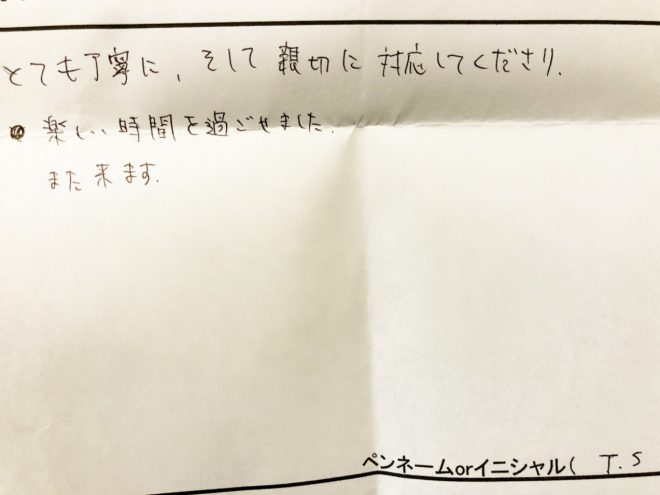 とても丁寧に、そして親切に対応してくださり、
楽しい時間を過ごせました。
また来ます。
ペンネームorイニシャル( T.S